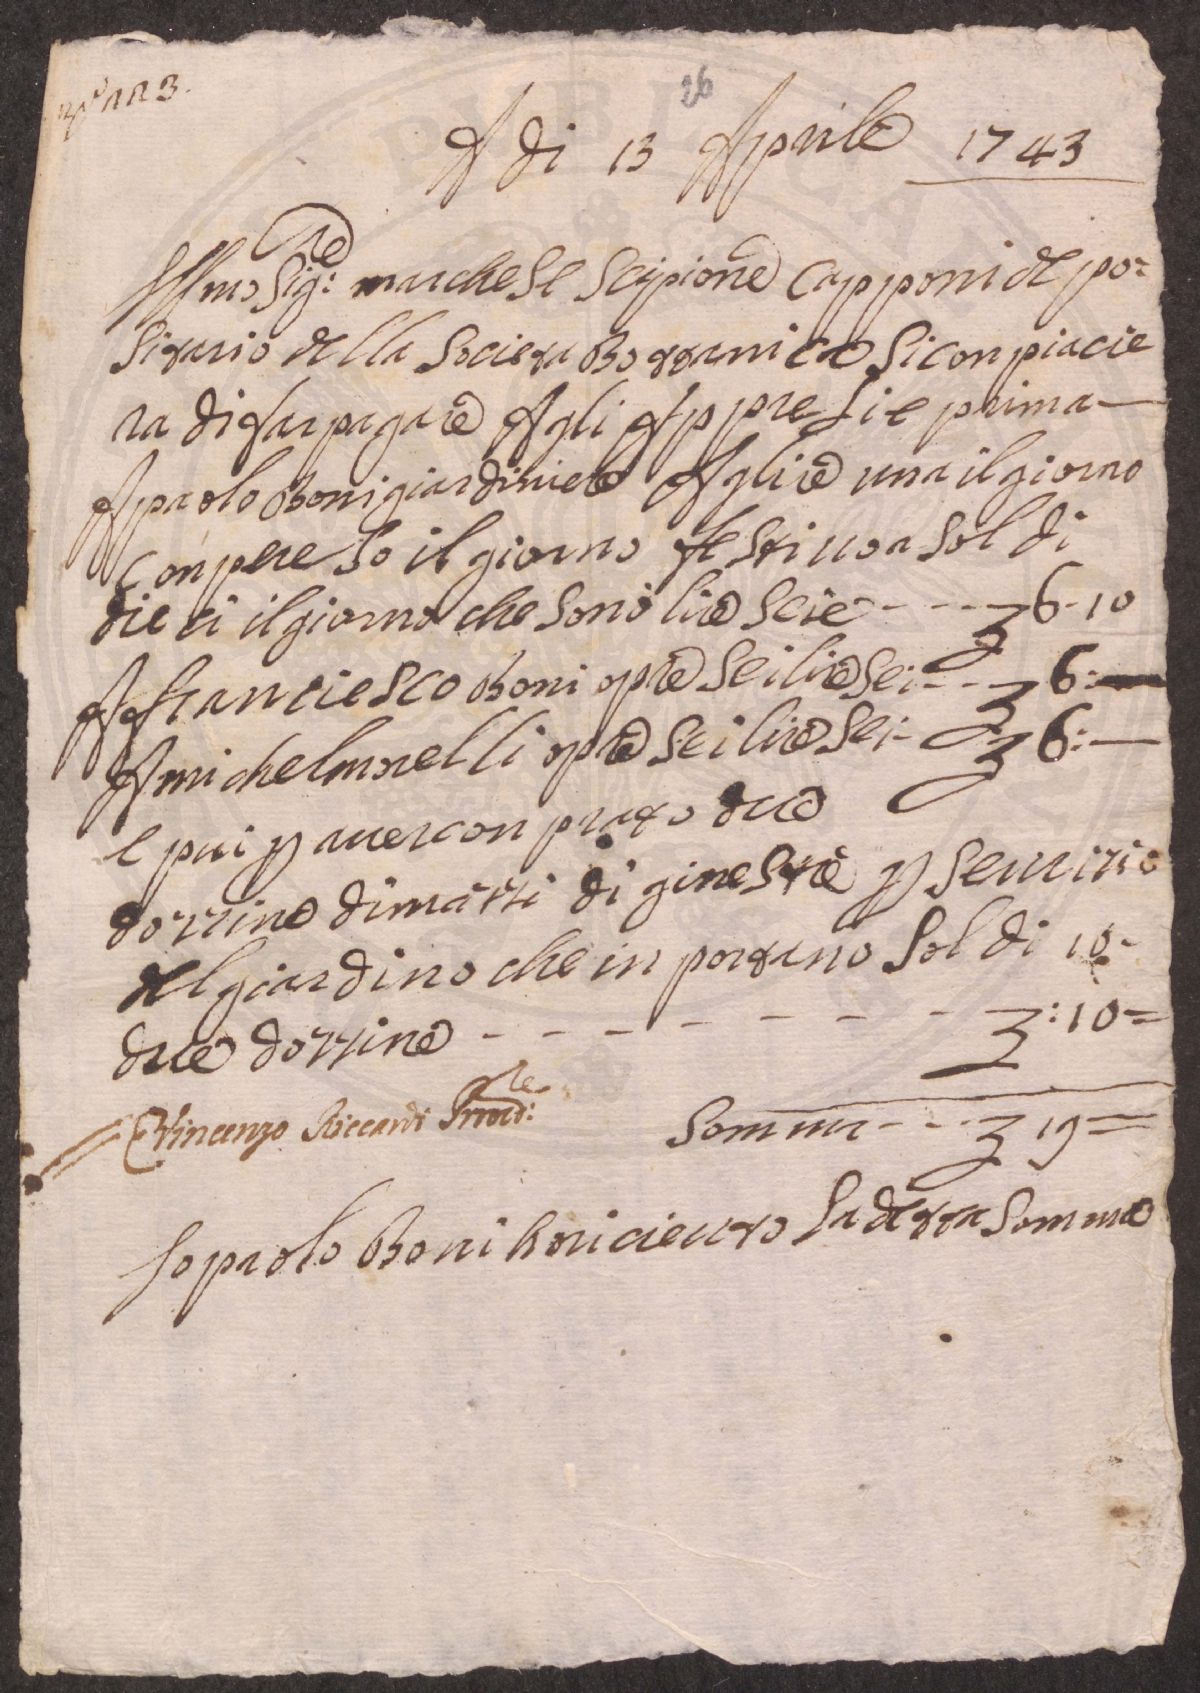 N° 223.
26
A di 13 Aprile 1743
Illmo Sig:re marchese Scipione Capponi de po=
sitario della Societa Bottanica si conpiacie
ra di far pagare Agli Appresie prima —
A paolo Boni giardiniere A lire una il giorno
conpreso il giorno festiuo a soldi
dieci il giorno che sono lire seie - - - £ 6-10
A franciesco Boni opre sei lire sei - - - £ 6: —
A michel morelli opre sei lire sei - £ 6: —
e piu p auer conprato due
dozzine di mazzi di ginestre p seruizio
del giardino che in portano soldi 10-
due dozzine - - - - - - - - - £ :10=
Vincenzo Riccardi Provd:re
Somma - - - £ 19=
Io paolo Boni ho riceuuto la detta somma